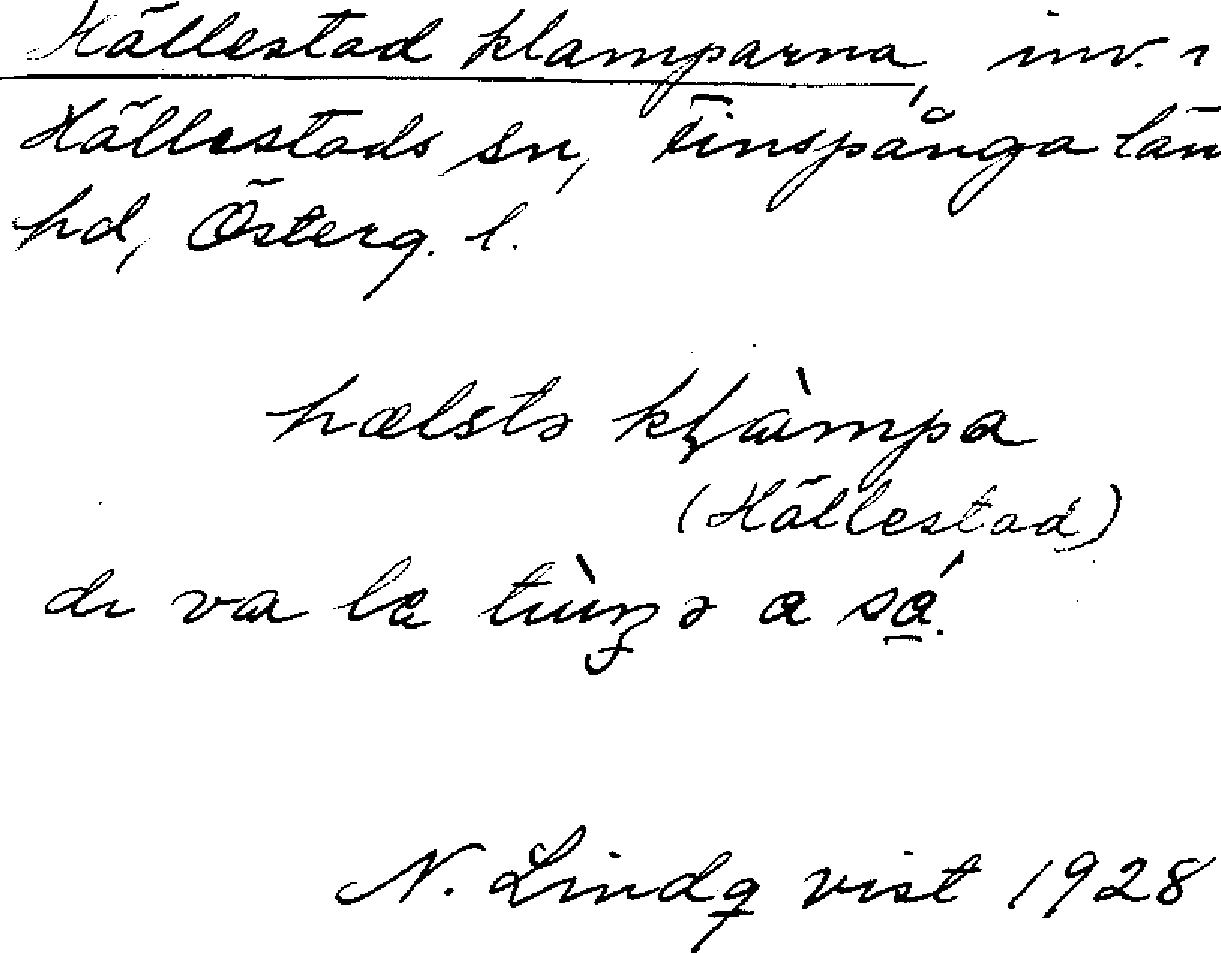 Hällestad klamparna, inv. i
Hällestads sn, Finspånga län
hd, Österg. l.
hælstə kḷàmpa
(Hällestad)
de va la a så.
N. Lindqvist 1928